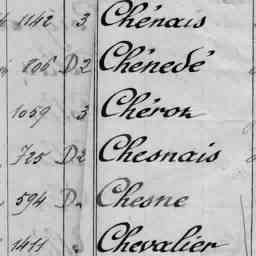 1142 3 Chénais
806 D 2 Chénedé
1059 3 Chéron
725 D 2 Chesnais
594 D Chesne
1411 Chevalier